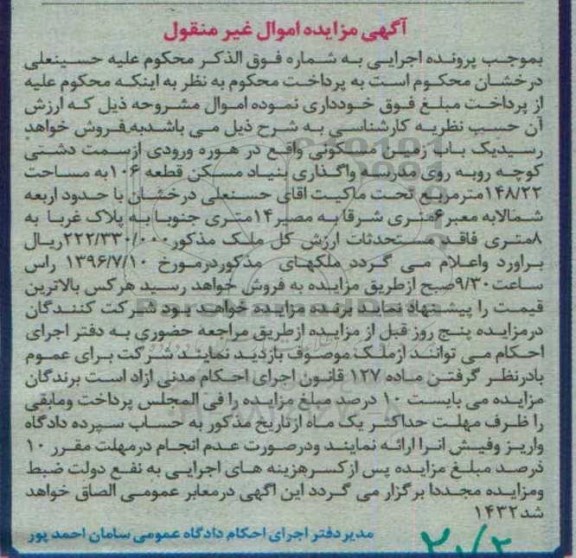 آگهی مزایده اموال غیر منقول
بموجب پرونده اجرایی به شماره فوق الذکر محکوم علیه حسینعلی
درخشان محکوم است به پرداخت محکوم به نظر به اینکه محکوم علیه
از پرداخت مبلغ فوق خودداری نموده اموال مشروحه ذیل که ارزش
آن حسب نظریه کارشناسی به شرح ذیل می باشدبه فروش خواهد
رسیدیک باب زمین مسکونی واقع در هوره ورودی ازسمت دشتی
کوچه روبه روی مدرسه واگذاری بنیاد مسکن قطعه ۱۰۶به مساحت
۱۴۸/۲۲مترمربع تحت ماکیت اقای حسنعلی درخشان با حدود اربعه
شمالابه معبر۶متری شرقا به مصیر۱۴متری جنوبا به پلاک غربا به
۸متری فاقد مستحدثات ارزش کل ملک مذکور۲۲۲/۳۳۰/۰۰۰ریال
براورد واعلام می گردد ملکهای مذکوردرمورخ ۱۳۹۶/۷/۱۰ راس
ساعت۹/۳۰صبح ازطریق مزایده به فروش خواهد رسید هرکس بالاترین
قیمت را پیشنهاد نماید برنده مزایده خواهد بود شرکت کنندگان
درمزایده پنج روز قبل از مزایده ازطریق مراجعه حضوری به دفتر اجرای
احکام می توانند ازملک موصوف بازدید نمایند شرکت برای عموم
بادرنظر گرفتن ماده ۱۲۷ قانون اجرای احکام مدنی ازاد است برندگان
مزایده می بایست ۱۰ درصد مبلغ مزایده را فی المجلس پرداخت ومابقی
را ظرف مهلت حداکثر یک ماه ازتاریخ مذکور به حساب سپرده دادگاه
واریز وفیش انرا ارائه نمایند ودرصورت عدم انجام درمهلت مقرر ۱۰
درصد مبلغ مزایده پس ازکسرهزینه های اجرایی به نفع دولت ضبط
ومزایده مجددا برگزار می گردد این اگهی درمعابر عمومی الصاق خواهد
شد۱۴۳۲
مدیردفتر اجرای احکام دادگاه عمومی سامان احمد پور
۲۰/۲